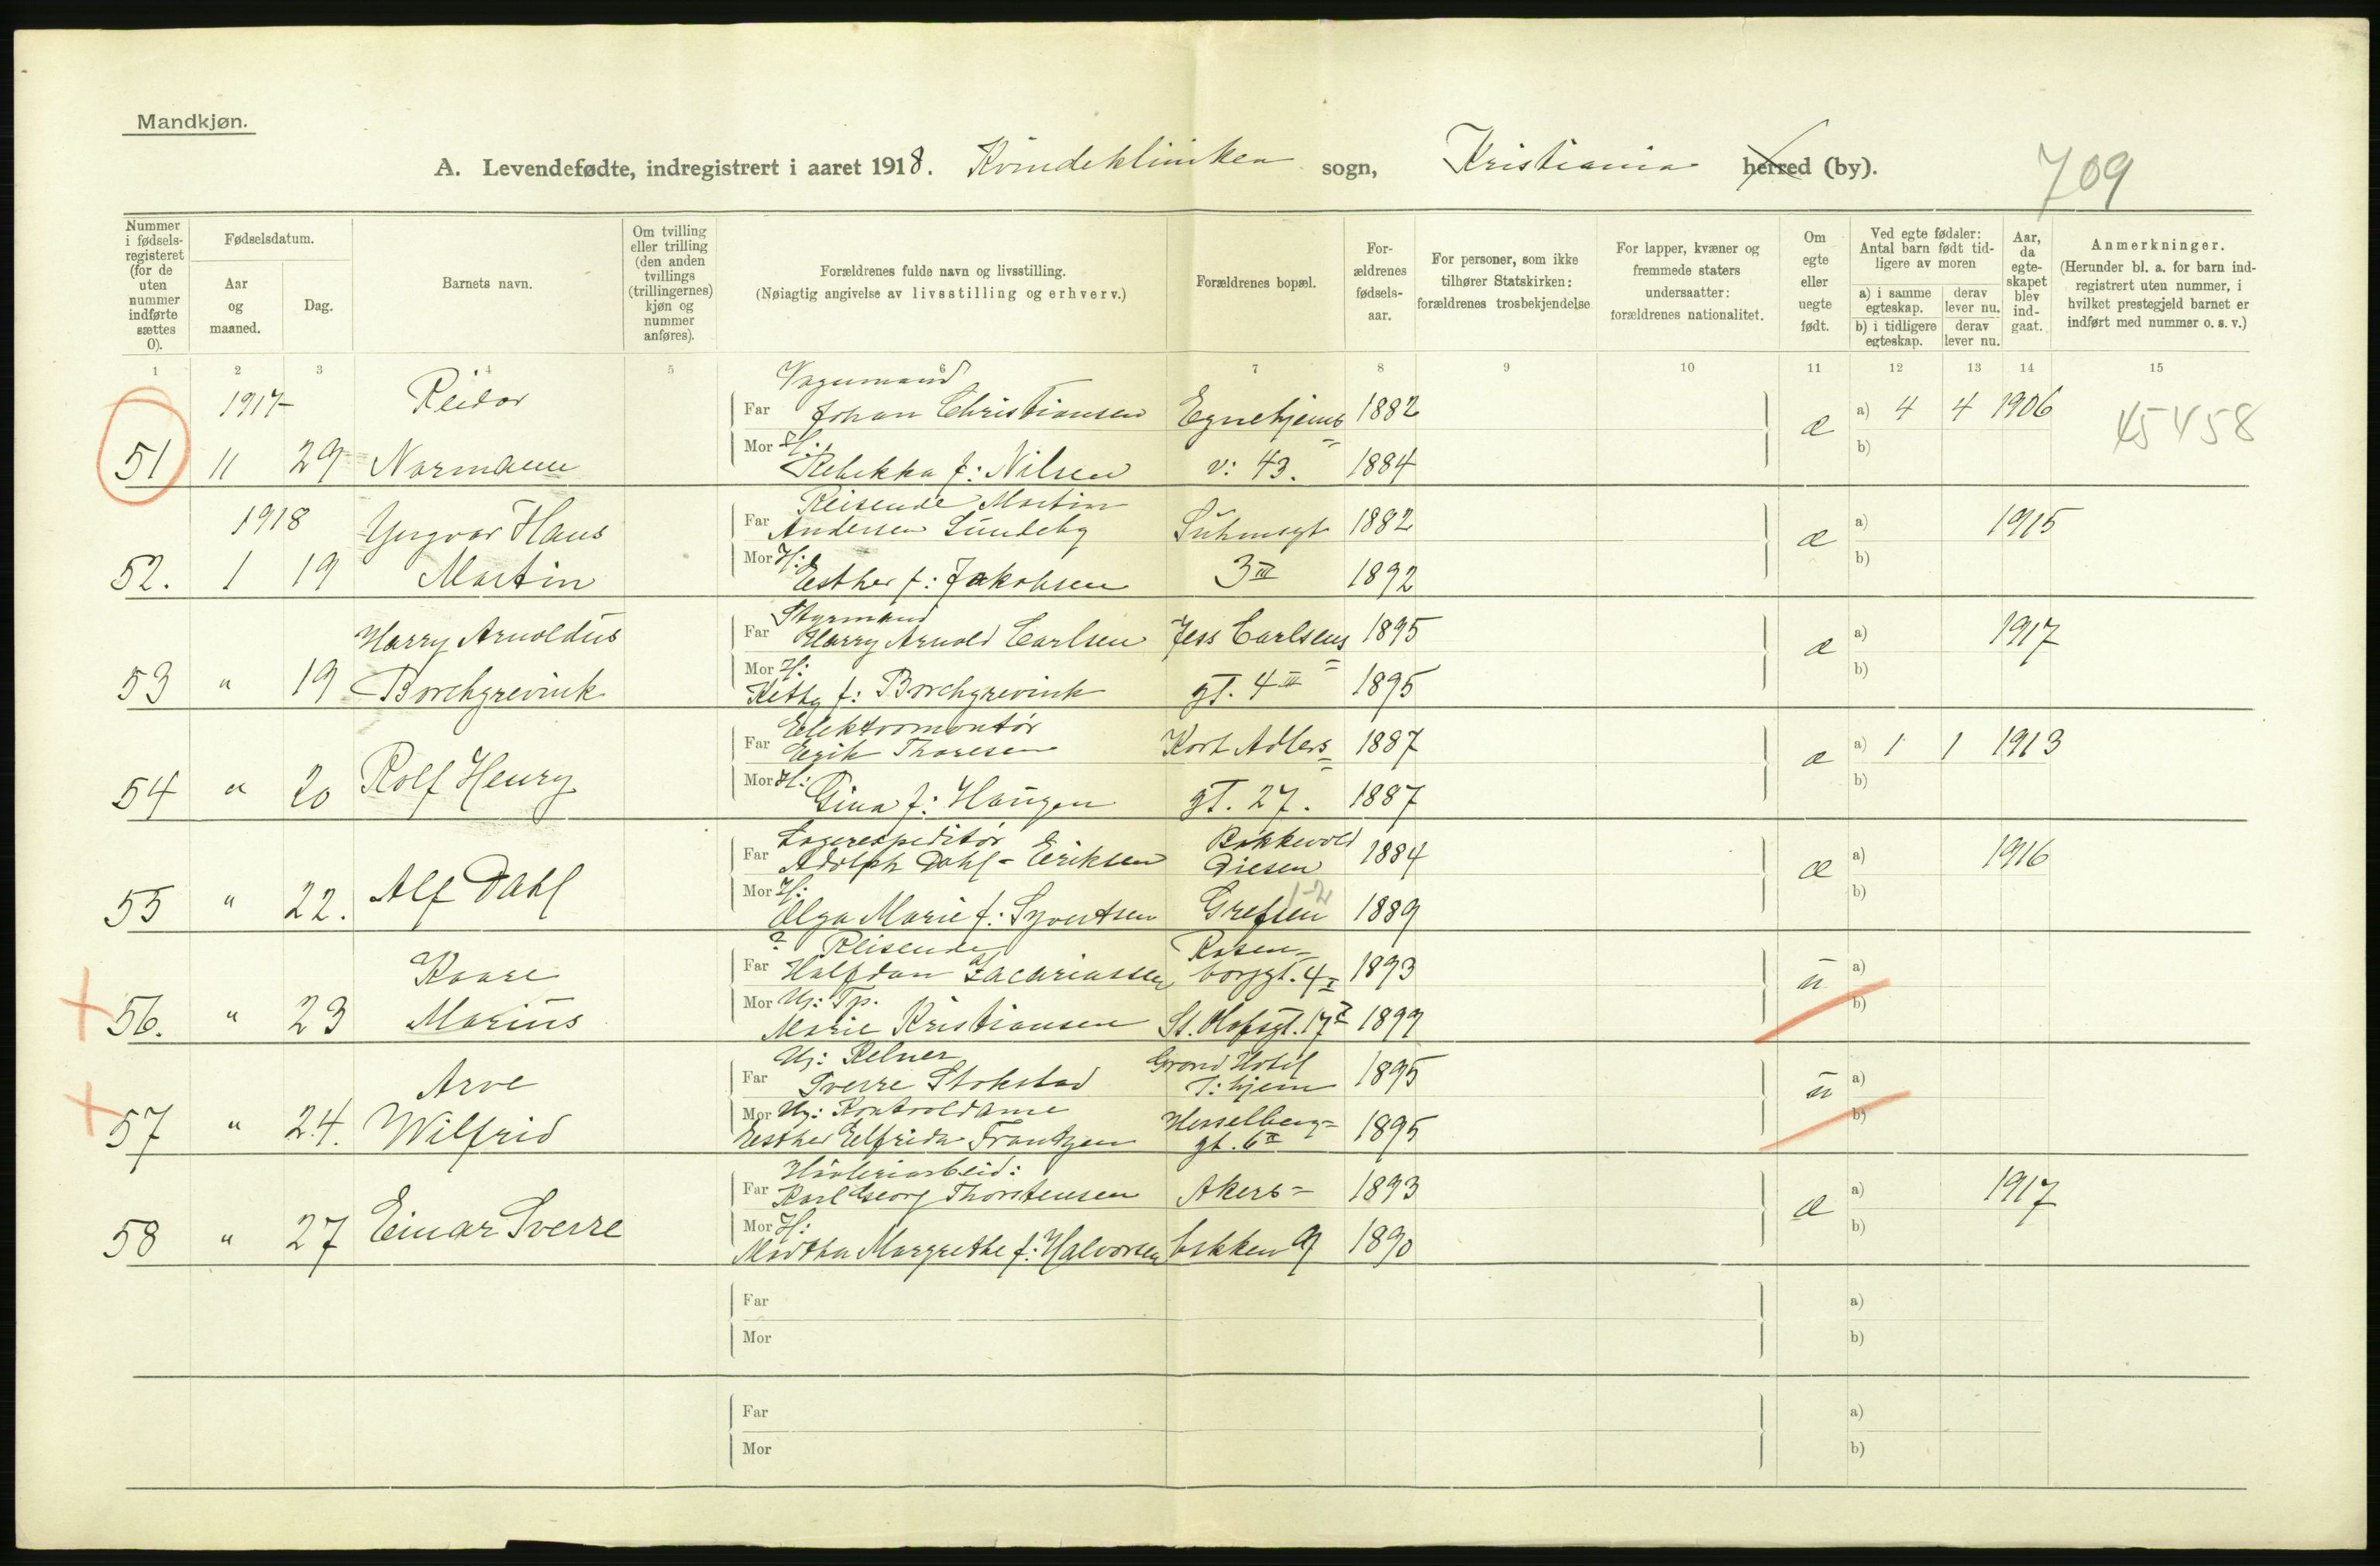 Mandkjøn.
A. Levendefødte, indregistrert i aaret 1918. Kvindeklinikken sogn, Kristiania herred (by).
709
Nummer i fødselsregisteret (for de uten nummer indførte sættes 0).
Fødselsdatum.
Aar og maaned.
Dag.
Barnets navn.
Om tvilling eller trilling (den anden tvillings (trillingernes) kjøn og nummer anføres).
Forældrenes fulde navn og livsstilling.
(Nøiagtig angivelse av livsstilling og erhverv.)
Forældrenes bopæl.
Forældrenes fødselsaar.
For personer, som ikke tilhører Statskirken: forældrenes trosbekjendelse
For lapper, kvæner og fremmede staters undersaatter: forældrenes nationalitet.
Om egte eller uegte født.
Ved egte fødsler: Antal barn født tidligere av moren
a) i samme egteskap. derav lever nu.
b) i tidligere egteskap. derav lever nu.
Aar, da egteskapet blev indgaat.
Anmerkninger.
(Herunder bl. a. for barn indregistrert uten nummer, i hvilket prestegjeld barnet er indført med nummer o. s. v.)
1 2 3 4 5 6 7 8 9 10 11 12 13 14 15
Vognmand
1917 Reidar Far Johan Christiansen Egnehjems 1882 æ a) 4 4 1906
51 11 29 Normann Mor H: Rebekka f: Nilsen v: 43. 1884 b)
45458
Reisende Martin
1918 Yngvar Hans Far Andersen Sundeby Suhmsgt 1882 æ a) 1915
52. 1 19 Martin Mor H: Esther f: Jakobsen 3 III 1892 b)
Styrmand
Harry Arnoldus Far Harry Arnold Carlsen Jess Carlsens 1895 æ a) 1917
53 " 19 Borchgrevink Mor H: Kitty f: Borchgrevink gt. 4 III 1895 b)
Elektromontør
Far Erik Thoresen Kort Adlers 1887 æ a) 1 1 1913
54 " 20 Rolf Henry Mor H: Gina f: Haugen gt. 27. 1887 b)
Lagerexpeditør Bakkevold
Far Adolph Dahl-Eriksen Diesen 1884 æ a) 1916
55 " 22. Alf Dahl Mor H: Olga Marie f: Syvertsen Grefsen 1889 b)
? Reisende Rosen-
Kaare Far Halfdan Zacariassen borggt. 4 I 1893 u a)
56. " 23 Marius Mor Uj: Tp. Marie Kristiansen St. Olafsgt. 17 I 1899 b)
Uj: Kelner Grand Hotel
Arve Far Sverre Stokstad T:hjem 1895 u a)
57 " 24. Wilfrid Mor Uj: Kontroldame Hesselberg- 1895 b)
Esther Elfrida Frantzen gt. 6 II
Far Karl Georg Thorstensen Akers- 1893 æ a) 1917
58 " 27 Einar Sverre Mor H: Martha Margrethe f: Halvorsen bakken 9 1890 b)
Far a)
Mor b)
Far a)
Mor b)